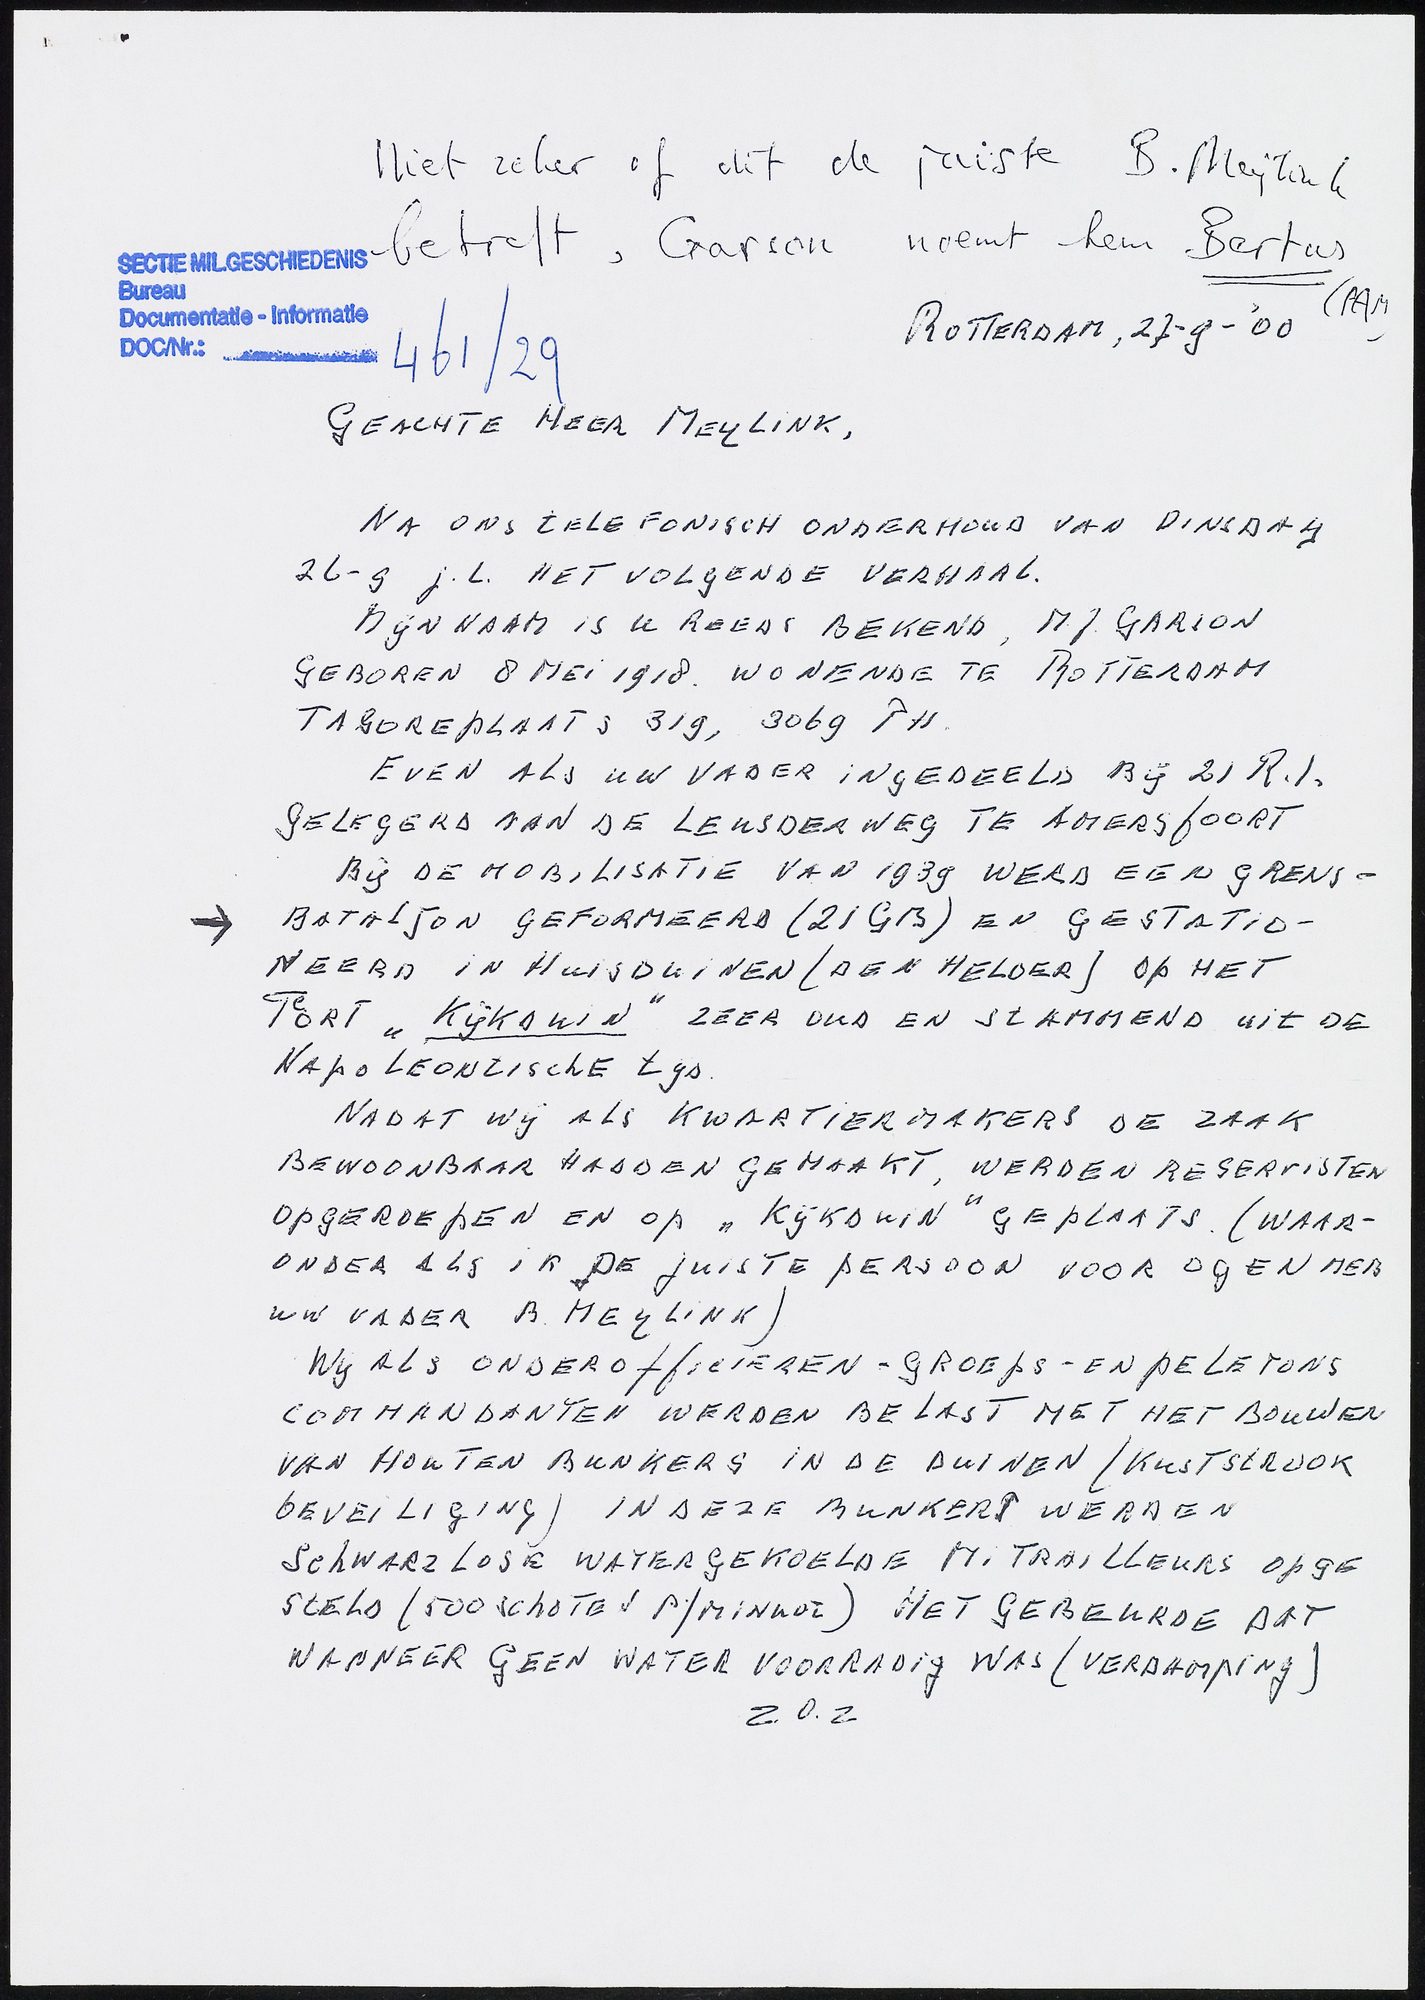 Niet zeker of dit de juiste B. Meÿlink
betreft, Garson noemt hem Bertus
(PAM)
SECTIE MIL.GESCHIEDENIS
Bureau
Documentatie - Informatie
DOC/Nr.: 461/29
ROTTERDAM, 27-9-'00
GEACHTE HEER MEYLINK,
NA ONS TELEFONISCH ONDERHOUD VAN DINSDAG
26-9 j.l. HET VOLGENDE VERHAAL.
MIJN NAAM IS U REEDS BEKEND, M.J. GARSON
GEBOREN 8 MEI 1918. WONENDE TE ROTTERDAM
TAGOREPLAATS 319, 3069 TH.
EVEN ALS UW VADER INGEDEELD BIJ 21 R.I.
GELEGERD AAN DE LEUSDERWEG TE AMERSFOORT
BIJ DE MOBILISATIE VAN 1939 WERD EEN GRENS-
→ BATALJON GEFORMEERD (21 GB) EN GESTATIO-
NEERD IN HUISDUINEN (DEN HELDER) OP HET
FORT „KIJKDUIN" ZEER OUD EN STAMMEND UIT DE
NAPOLEONTISCHE TYD.
NADAT WIJ ALS KWARTIERMAKERS DE ZAAK
BEWOONBAAR HADDEN GEMAAKT, WERDEN RESERVISTEN
OPGEROEPEN EN OP „KIJKDUIN" GEPLAATS. (WAAR-
ONDER ALS IK DE JUISTE PERSOON VOOR OGEN HEB
UW VADER B. MEYLINK)
WIJ ALS ONDEROFFICIEREN - GROEPS - EN PELETONS
COMMANDANTEN WERDEN BELAST MET HET BOUWEN
VAN HOUTEN BUNKERS IN DE DUINEN (KUSTSTROOK
BEVEILIGING) IN DEZE BUNKERS WERDEN
SCHWARZLOSE WATERGEKOELDE MITRAILLEURS OPGE
STELD (500 SCHOTEN P/MINUUT) HET GEBEURDE DAT
WANNEER GEEN WATER VOORRADIG WAS (VERDAMPING)
Z.O.Z